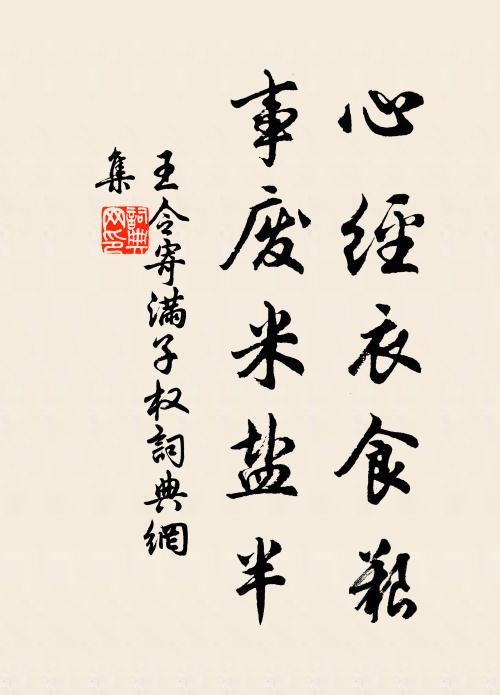 心經衣食艱
事废米盐半
王令寄滿子权詞典網
集
詞典
网印